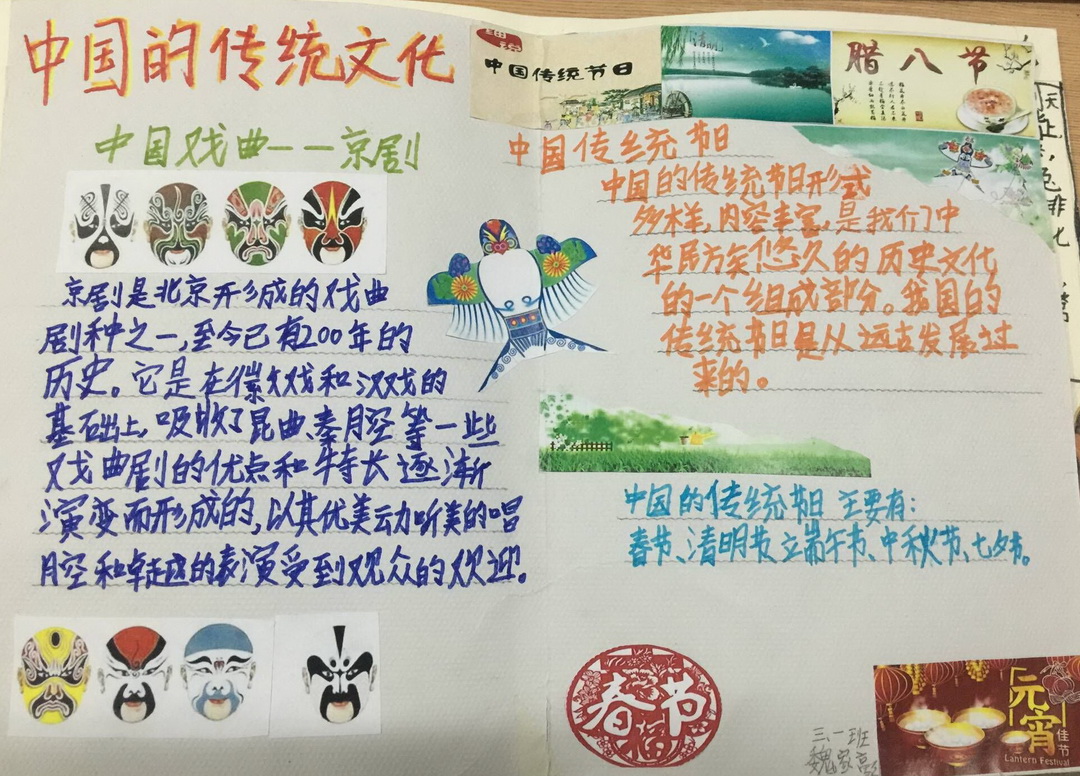 中国的传统文化
中国戏曲——京剧
京剧是北京形成的戏曲
剧种之一,至今已有200年的
历史。它是在徽戏和汉戏的
基础上,吸收了昆曲、秦腔等一些
戏曲剧的优点和特长逐渐
演变而形成的,以其优美动听美的唱
腔和卓越的表演受到观众的欢迎。
中国传统节日
清明
腊八节
中国传统节日
中国的传统节日形式
多样,内容丰富,是我们中
华民族悠久的历史文化
的一个组成部分。我国的
传统节日是从远古发展过
来的。
中国的传统节日主要有:
春节、清明节、立端午节、中秋节、七夕节。
春节
福
三、一班
魏家
元宵
佳节
Lantern Festival